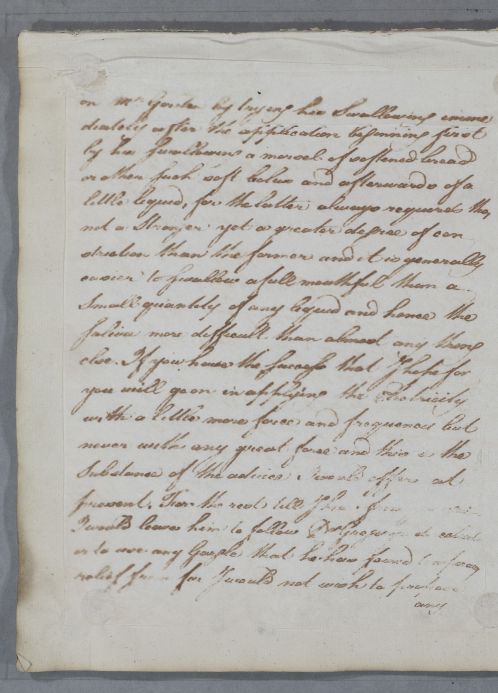 on Mrs Gordon by trying her Swallowing imme
diately after the application beginning first
by her Swallowing a morsel of softened bread
or other such soft bolus and afterwards of a
little liquid, for the latter always requires tho,
not a Stronger yet a greater degree of con
traction than the former and it is generally
easier to Swallow a full mouthful than a
Small quantity of any liquid and hence the
Saliva more difficult than almost any thing
else. If you have the Success that I hope for
you will go on in applying the Electricity
with a little more force and frequency but
never with any great force and this is the
Substance of the advice I would offer at
present. For the rest till I
I would leave him to follow
or to use any Gargle that he has found temporary
relief from for I would not wish to propose
any